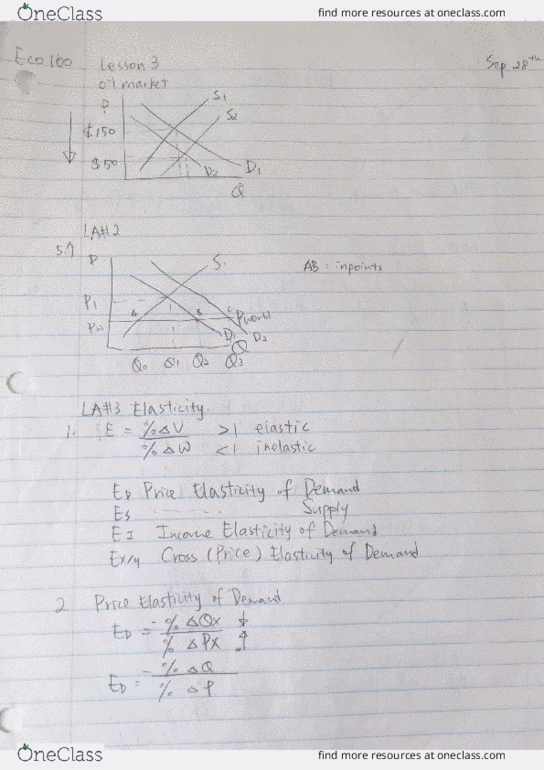 OneClass find more resources at oneclass.com
Eco 160 Lesson 3 Sep. 28th
oil market
P
S1
S2
$150
$50
D2 D1
Q
LA#2
5.
P S.
AB : inpoints
P1
A B C Pworld
Pw
D1 D2
Q
Q0 Q1 Q2 Q3
LA#3 Elasticity.
1. E = %ΔV >1 elastic
%ΔW <1 inelastic
ED Price Elasticity of Demand
Es Supply
EI Income Elasticity of Demand
Ex/y Cross (Price) Elasticity of Demand
2 Price Elasticity of Demand
ED = -% ΔQx ↓
% ΔPx ↑
ED = -% ΔQ
% ΔP
OneClass find more resources at oneclass.com